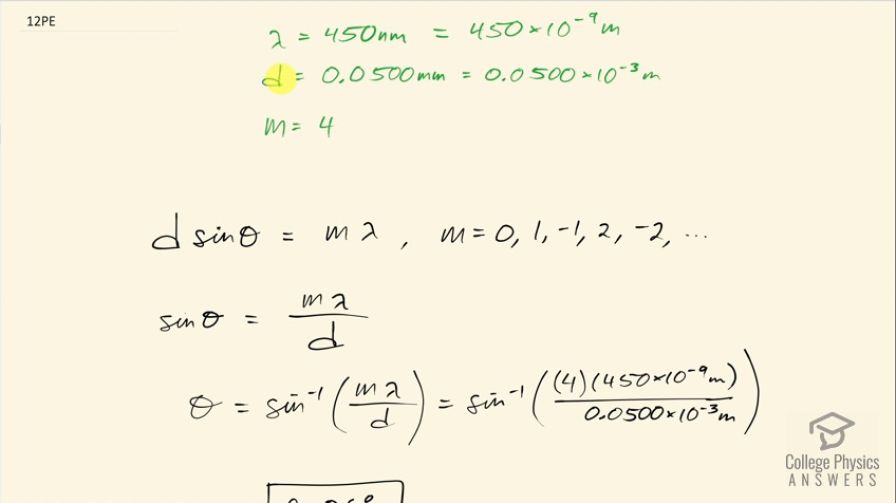 12PE
λ = 450nm = 450×10⁻⁹m
d = 0.0500mm = 0.0500×10⁻³m
m = 4
d sinθ = mλ, m = 0, 1, -1, 2, -2, ...
sinθ = mλ/d
θ = sin⁻¹(mλ/d) = sin⁻¹((4)(450×10⁻⁹m)/0.0500×10⁻³m)
College Physics
ANSWERS